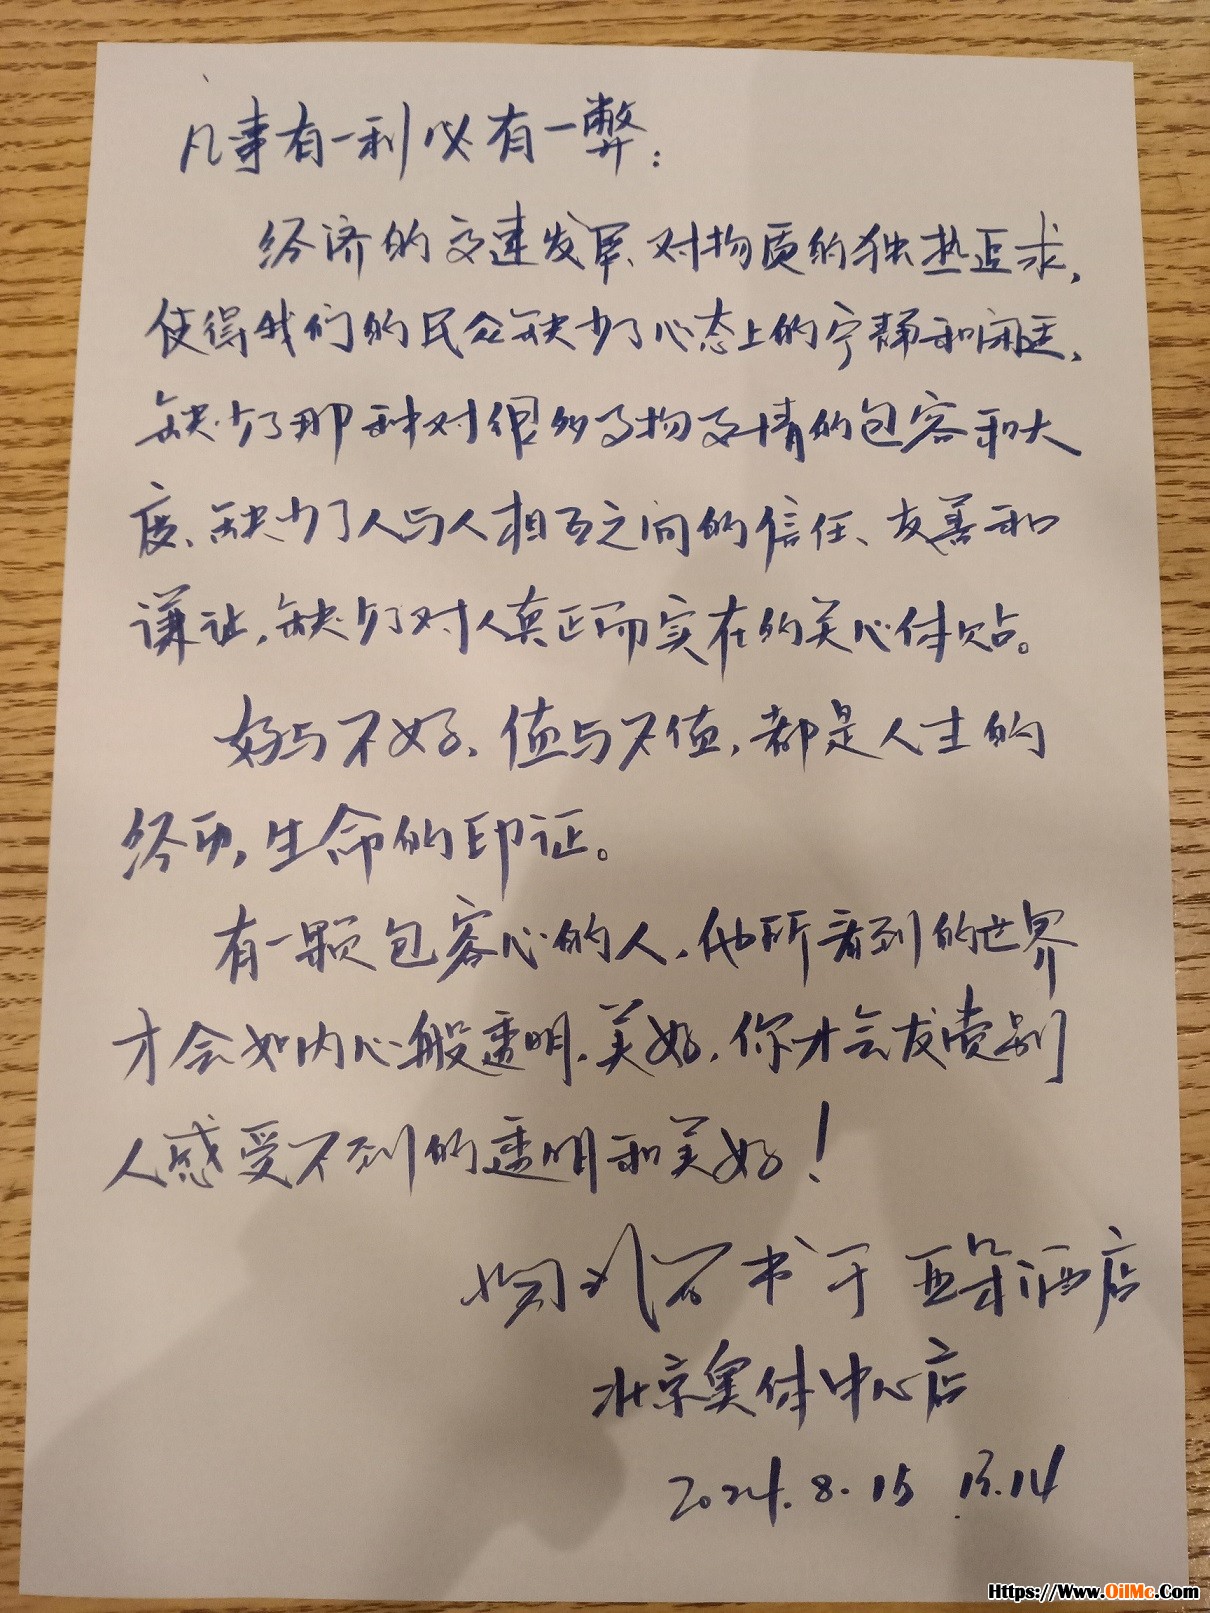 凡事有一利必有一弊:
经济的高速发展、对物质的狂热追求,
使得我们的民众缺少了心态上的宁静和闲适,
缺少了那种对很多事物及事情的包容和大
度、缺少了人与人相互之间的信任、友善和
谦让,缺少了对人真正而实在的关心体贴。
好与不好、值与不值,都是人生的
经历,生命的印证。
有一颗包容心的人,他所看到的世界
才会如内心般透明、美好,你才会发觉别
人感受不到的透明和美好!
书于 亚朵酒店
北京奥体中心店
2024.8.15
Https://Www.OilMc.Com